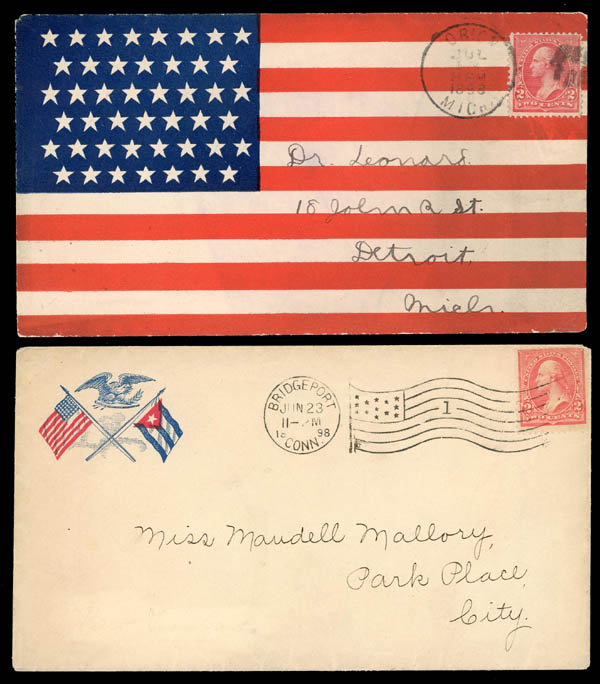 JUL
1898
MICH.
TWO CENTS
Dr. Leonard.
18 John R St.
Detroit,
Mich.
BRIDGEPORT
JUN 23
11- PM
98
CONN.
1
Miss Maudell Mallory,
Park Place,
City.